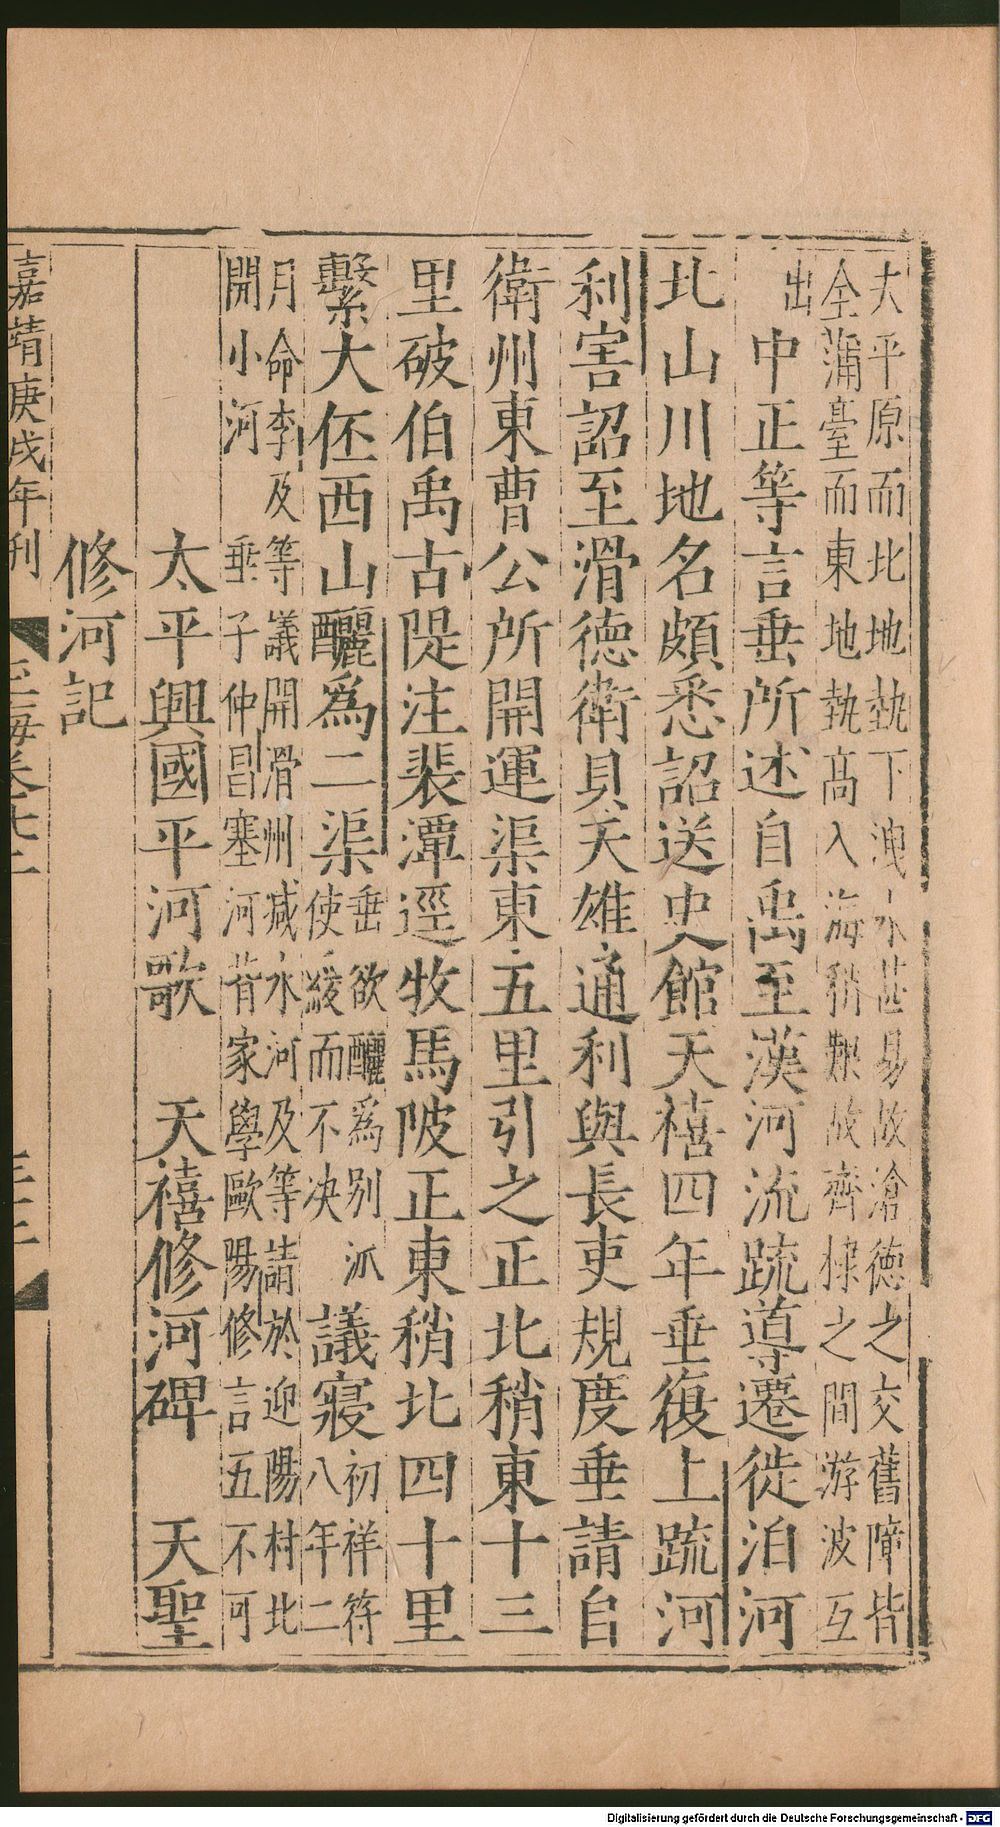 大平原而北地埶下洩水甚易故滄德之交舊障皆
全蒲臺而東地埶髙入海稍艱故齊棣之間游波互
出
中正等言垂所述自禹至漢河流疏導遷徙泊河
北山川地名頗悉詔送史館天禧四年垂復上疏河
利害詔至滑德衛貝天雄通利與長吏規度垂請自
衛州東曹公所開運渠東五里引之正北稍東十三
里破伯禹古隄注裴潭逕牧馬陂正東稍北四十里
繫大伾西山釃爲二渠
垂欲釃爲別派
使緩而不决
議寢
初祥符
八年二
月命李及等議開滑州减水河及等請於迎陽村北
開小河 垂子仲昌塞河背家學歐陽修言五不可
太平興國平河歌 天禧修河碑 天聖
修河記
嘉靖庚戌年刊
Digitalisierung gefördert durch die Deutsche Forschungsgemeinschaft - DFG